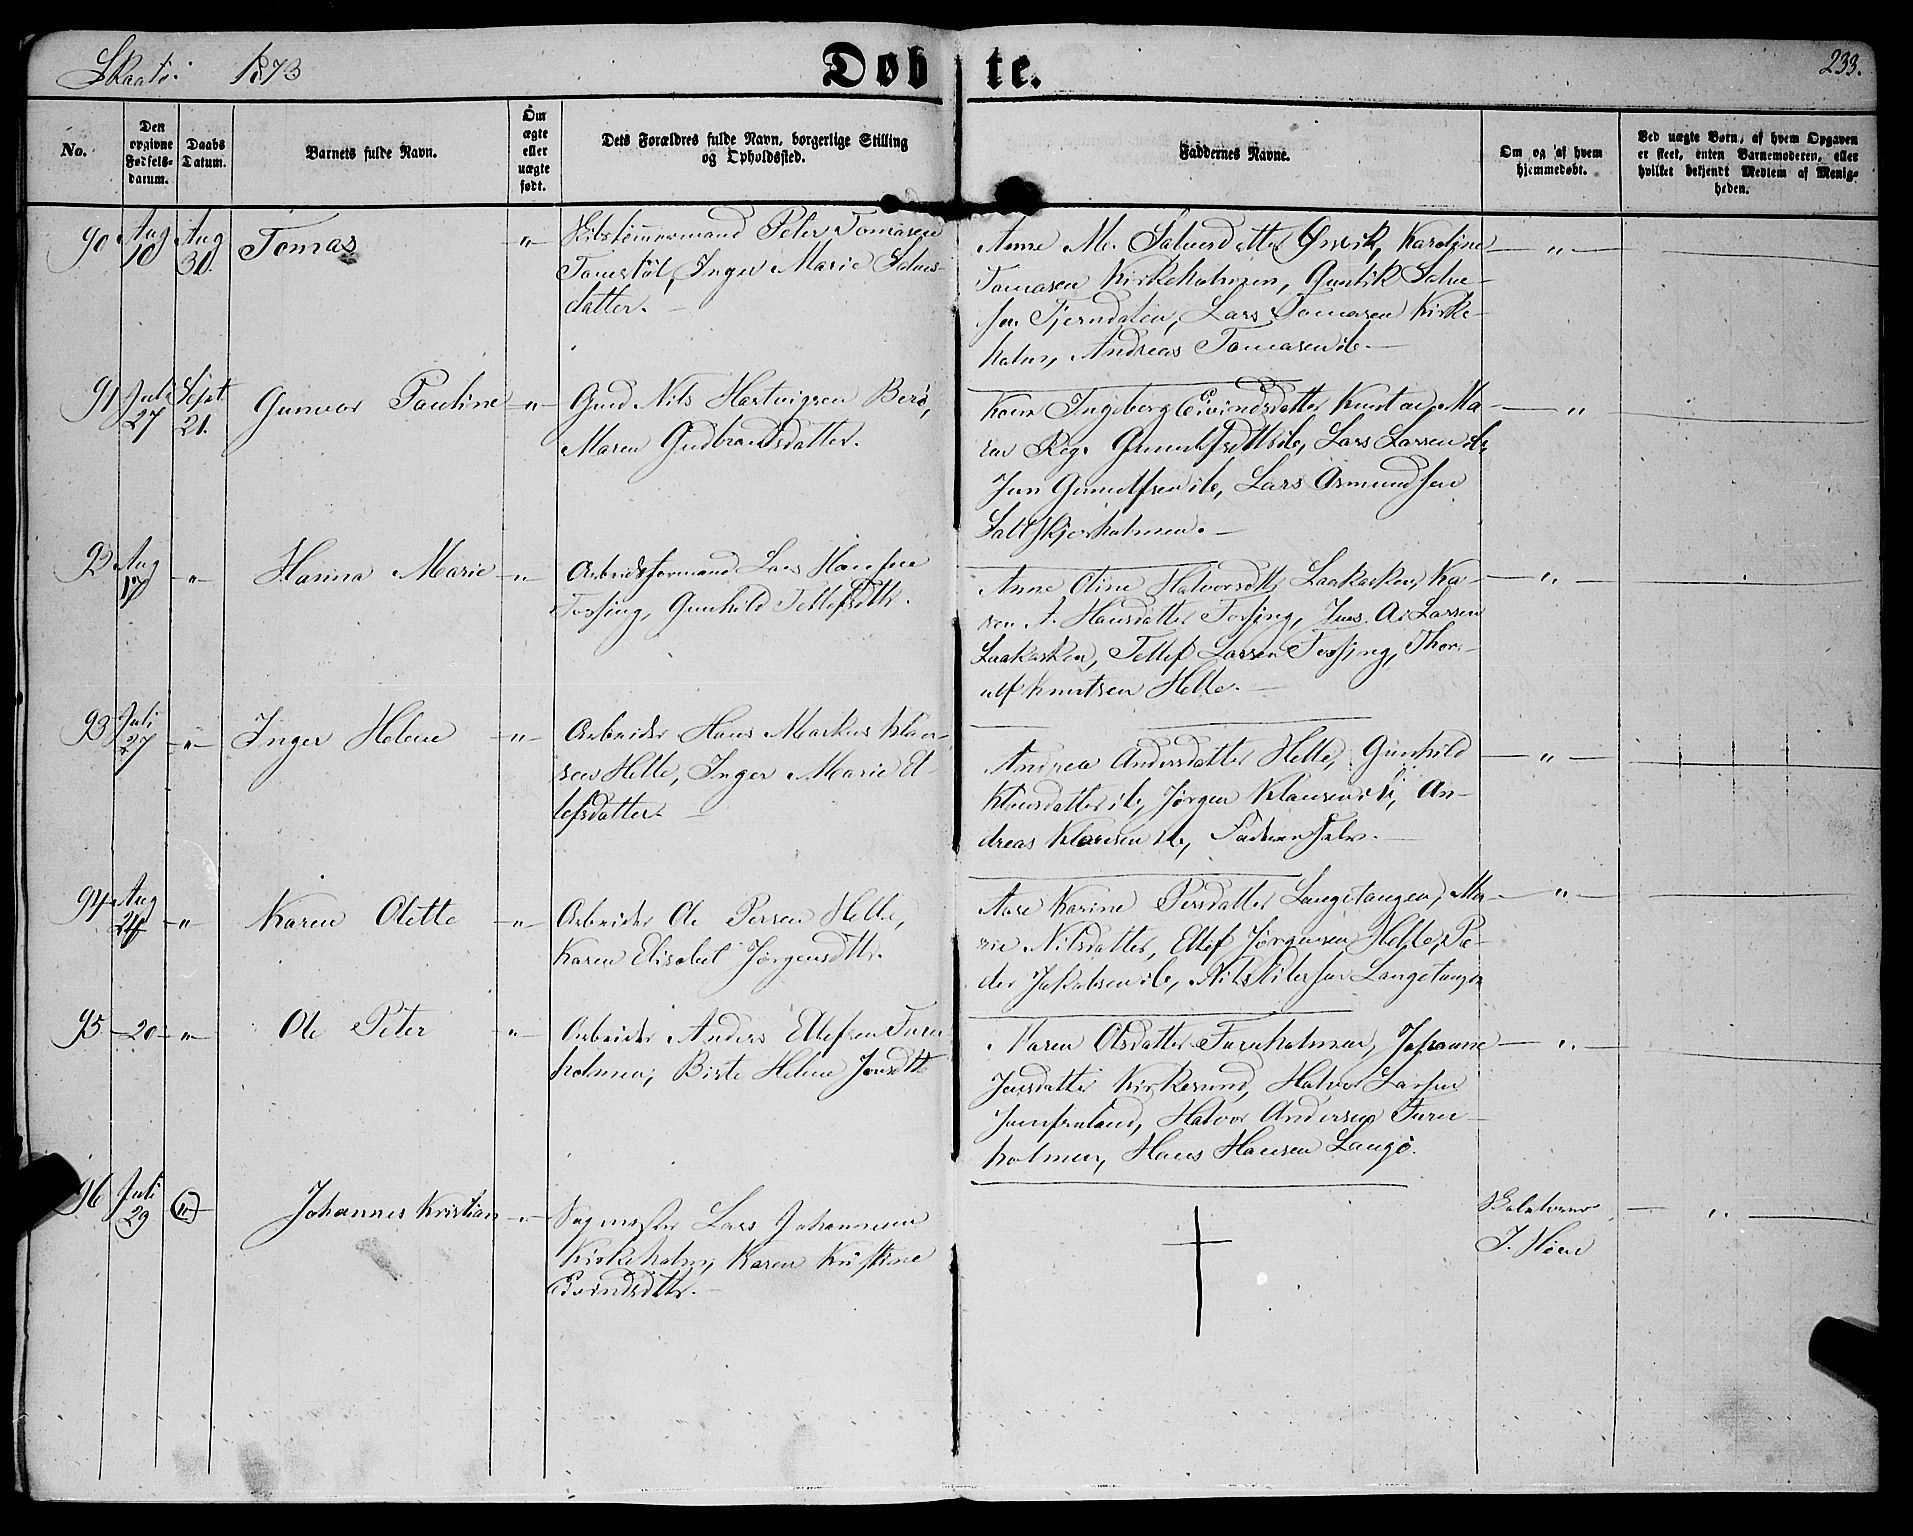 Skaatø. 1873
Døbte.
233.
No.
Den opgivne Fødsels-datum.
Daabs Datum.
Barnets fulde Navn.
Om ægte eller uægte født.
Dets Forældres fulde Navn, borgerlige Stilling og Opholdssted.
Faddernes Navne.
Om og af hvem hjemmedøbt.
Ved uægte Børn, af hvem Opgaven er skeet, enten Barnemoderen, eller hvilket bekjendt Medlem af Menigheden.
90 Aug 10 Aug 31. Tomas "
Skibstømmermand Peter Tomasen
Inger Marie Salves-
datter.
Anne M. Salvesdatter Ørsvik, Karoline
Tomasen Kirkeholmen, Gunlik Salve-
sen Tjerndalen, Lars Tomasen Kirke-
holm, Andreas Tomasen ib.
"
91 Juli 27 Sept 21. Gunvor Pauline "
Gmd Nils Hartvigsen Berø,
Maren Gudbrandsdatter.
Kone Ingeborg Eivindsdatter Ma-
ren Reg. ib, Lars Larsen ib,
Jens ib, Lars Asmundsen
Saltskjerholmen.
"
92 Aug 17 " Hanna Marie "
Arbeidsformand Lars Hansen
Tossing, Gunhild Tellefsdtr.
Anne Oline Halvorsdtr Laakasken, Ka-
ren A. Hansdatter Tossing, Jens A. Larsen
Laakasken, Tellef Larsen Tossing, Thor-
ulf Knutsen Helle.
"
93 Juli 27 " Inger Helene "
Arbeider Hans Markus Klau-
sen Helle, Inger Marie El-
lefsdatter.
Andrea Andersdatter Helle, Gunhild
Klausdatter ib, Jørgen Klausen ib, An-
dreas Klausen ib, Faderen selv.
"
94 Aug 24 " Karen Olette "
Arbeider Ole Persen Helle,
Karen Elisabet Jørgensdtr.
Aase Karine Persdatter Langetangen, Ma-
rie Nilsdatter, Ellef Jørgensen Helle, Pe-
der Jakobsen ib, Nils Petersen Langetangen
"
95 20 " Ole Peter "
Arbeider Anders Ellefsen Furu-
holmen, Birte Helene Jonsdtr
Maren Olsdatter Furuholmen, Johanne
Jensdatter Kirkesund, Halvor Larsen
Jomfruland, Halvor Andersen Furu-
holmen, Hans Hansen Langø.
"
96 Juli 29 " Johannes Kristian "
Sagmester Lars Johannesen
Kirkeholm, Karen Kristine
Eivindsdtr.
J. Høen
"